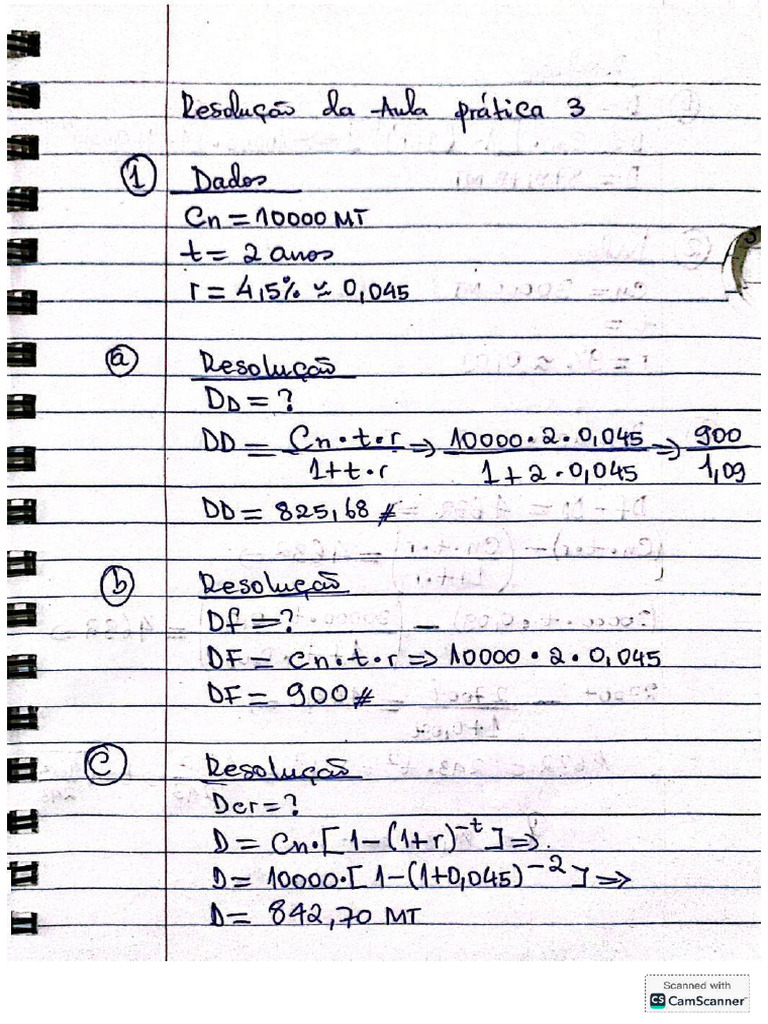 Resolução da Aula prática 3
① Dados
Cn = 10000 MT
t = 2 anos
r = 4,5% ≈ 0,045
ⓐ Resolução
DD = ?
DD = Cn・t・r / 1+t・r ⇒ 10000・2・0,045 / 1+2・0,045 ⇒ 900 / 1,09
DD = 825,68 //
ⓑ Resolução
Df = ?
DF = Cn・t・r ⇒ 10000・2・0,045
DF = 900 //
ⓒ Resolução
Dcr = ?
D = Cn・[1-(1+r)^-t] ⇒
D = 10000・[1-(1+0,045)^-2] ⇒
D = 842,70 MT
Scanned with
CS CamScanner